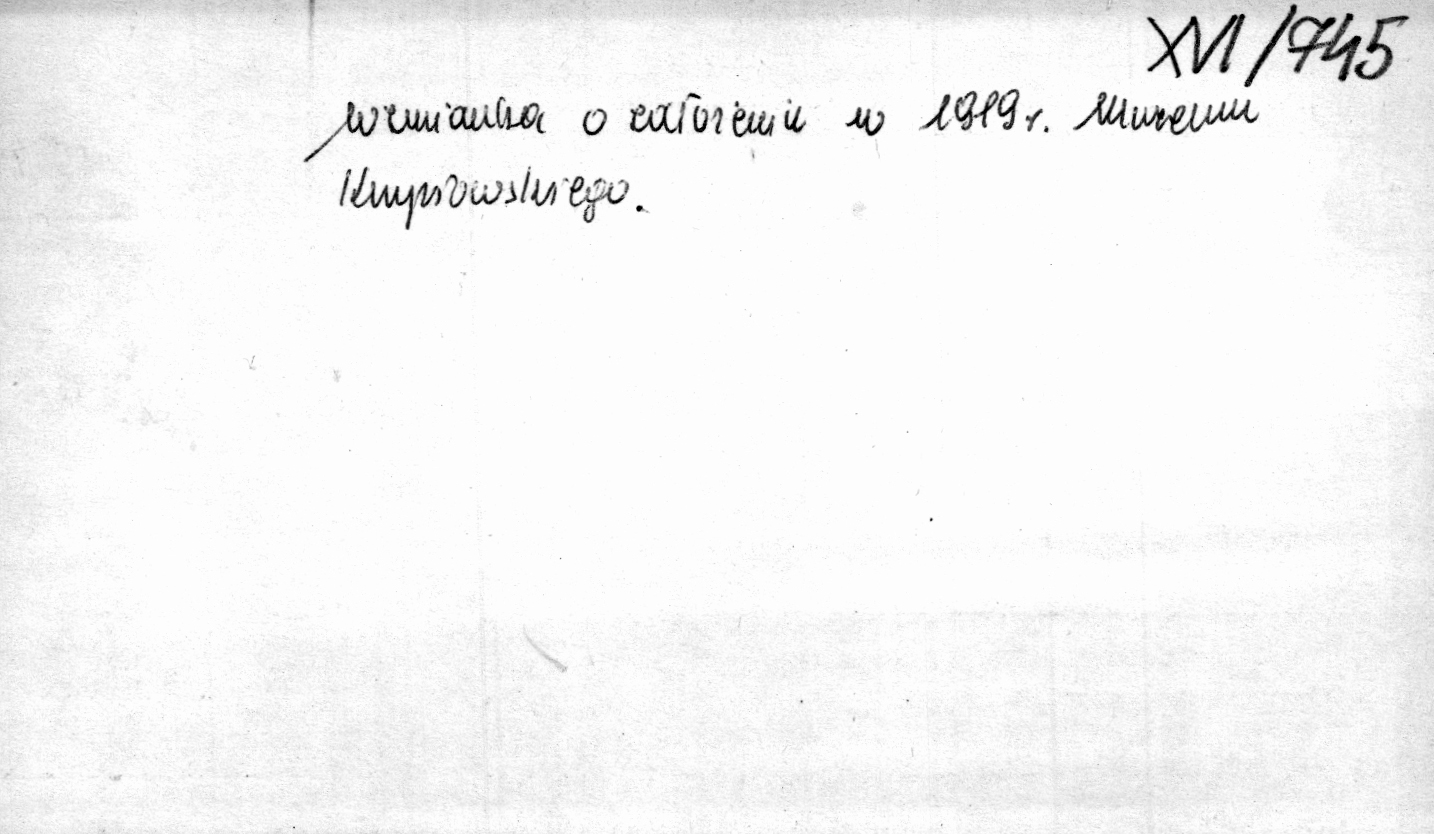 XVI/745
wzmianka o założeniu w 1919 r. Muzeum